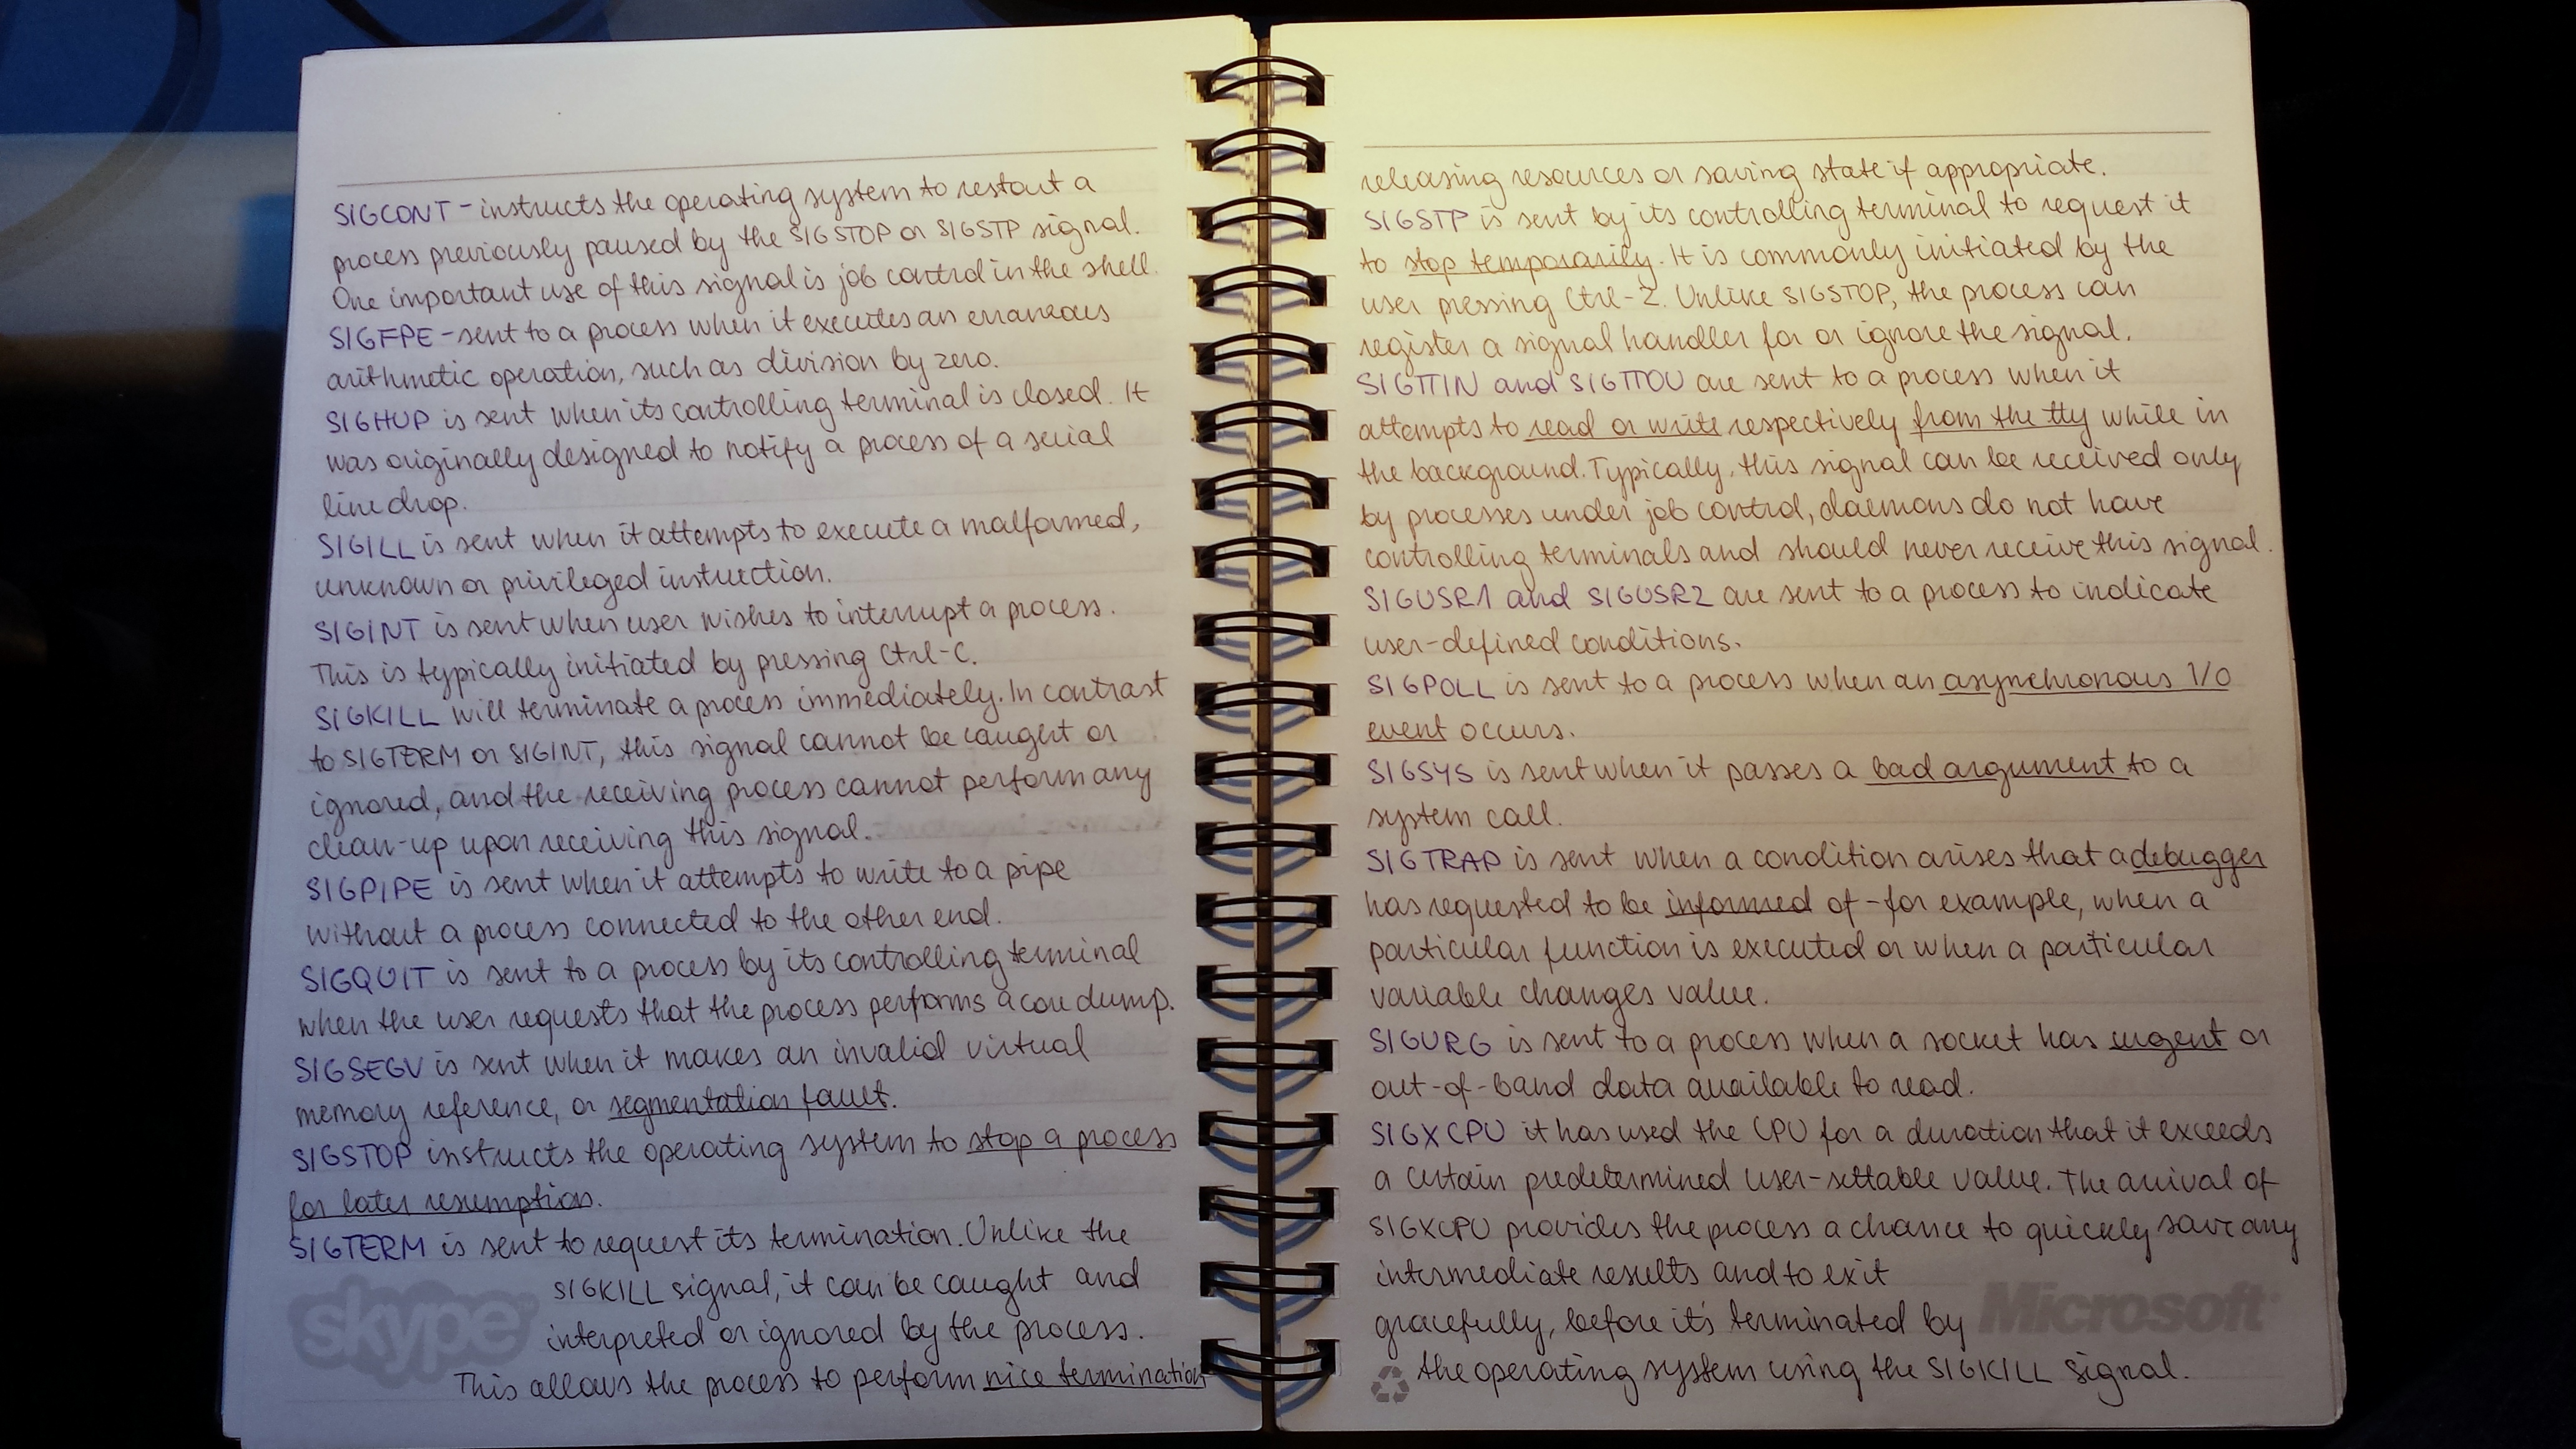 SIGCONT - instructs the operating system to restart a
process previously paused by the SIGSTOP or SIGSTP signal.
One important use of this signal is job control in the shell.
SIGFPE - sent to a process when it executes an erraneous
arithmetic operation, such as division by zero.
SIGHUP is sent when its controlling terminal is closed. It
was originally designed to notify a process of a serial
line drop.
SIGILL is sent when it attempts to execute a malformed,
unknown or privileged instruction.
SIGINT is sent when user wishes to interrupt a process.
This is typically initiated by pressing Ctrl-C.
SIGKILL will terminate a process immediately. In contrast
to SIGTERM or SIGINT, this signal cannot be caught or
ignored, and the receiving process cannot perform any
clean-up upon receiving this signal.
SIGPIPE is sent when it attempts to write to a pipe
without a process connected to the other end.
SIGQUIT is sent to a process by its controlling terminal
when the user requests that the process performs a core dump.
SIGSEGV is sent when it makes an invalid virtual
memory reference, or segmentation fault.
SIGSTOP instructs the operating system to stop a process
for later resumption.
SIGTERM is sent to request its termination. Unlike the
SIGKILL signal, it can be caught and
interpreted or ignored by the process.
This allows the process to perform nice termination
skype
releasing resources or saving state if appropriate.
SIGSTP is sent by its controlling terminal to request it
to stop temporarily. It is commonly initiated by the
user pressing Ctrl-Z. Unlike SIGSTOP, the process can
register a signal handler for or ignore the signal.
SIGTTIN and SIGTTOU are sent to a process when it
attempts to read or write respectively from the tty while in
the background. Typically, this signal can be received only
by processes under job control, daemons do not have
controlling terminals and should never receive this signal.
SIGUSR1 and SIGUSR2 are sent to a process to indicate
user-defined conditions.
SIGPOLL is sent to a process when an asynchronous I/O
event occurs.
SIGSYS is sent when it passes a bad argument to a
system call.
SIGTRAP is sent when a condition arises that a debugger
has requested to be informed of - for example, when a
particular function is executed or when a particular
variable changes value.
SIGURG is sent to a process when a socket has urgent or
out-of-band data available to read.
SIGXCPU it has used the CPU for a duration that it exceeds
a certain predetermined user-settable value. The arrival of
SIGXCPU provides the process a chance to quickly save any
intermediate results and to exit
gracefully, before it's terminated by
the operating system using the SIGKILL signal.
Microsoft